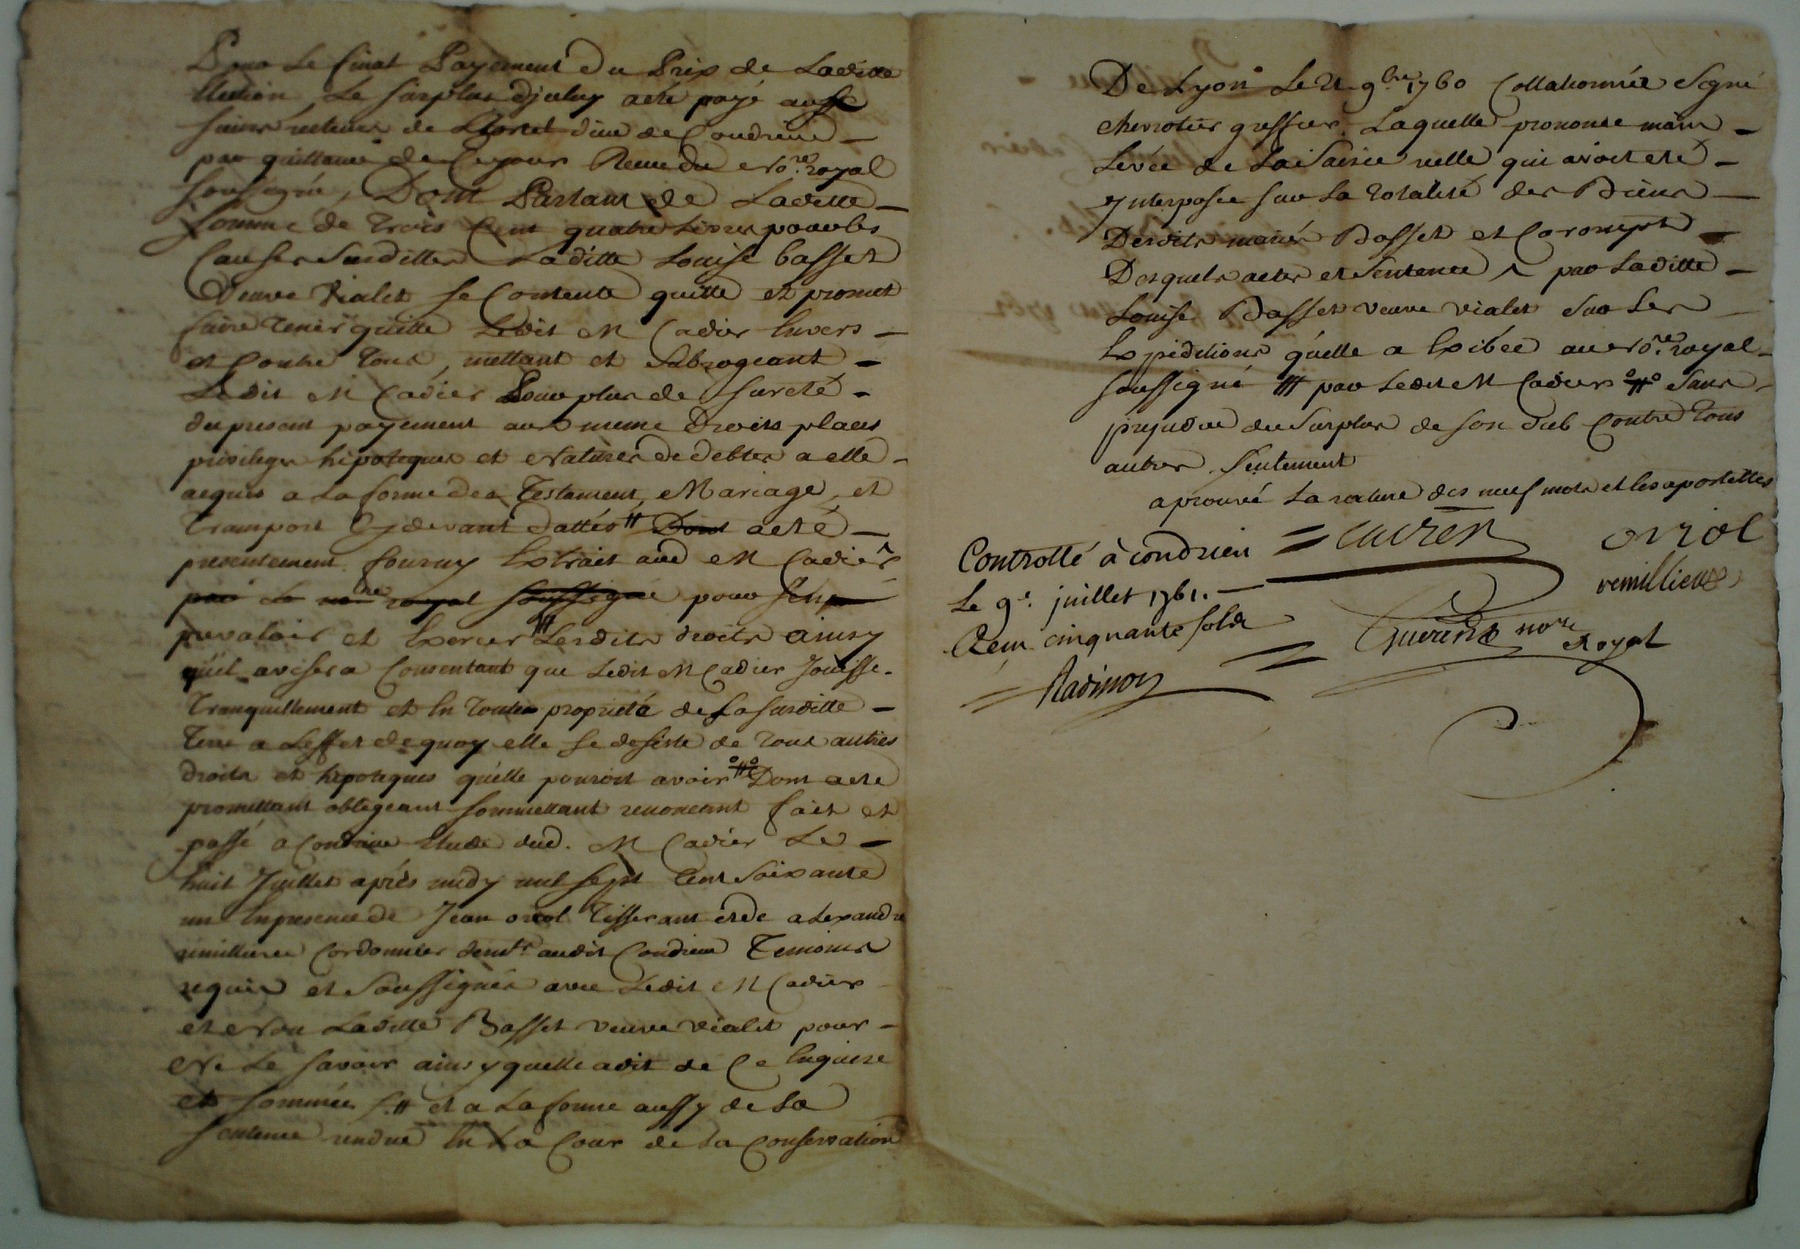 Pour Le finat Payement du Prix de Laditte
Le surplus d'jceluy a été payé
de de Condrieu
par quittance de Ce jour Receue du No.re royal
soussigné, Dont Partant de Laditte
somme de trois Cent quatre Livres pour les
Causes Susdittes Laditte Louise basset
Veuve Vialet se Contente quitte et promet
faire tenir quitte Ledit M Cadier Envers
et Contre tous, mettant et subrogeant
Ledit M Cadier Pour plus de sureté
du present payement aux meme Droits places
privileges hipoteques et Natures de debtes a elle
acquis a La forme des Testament, Mariage, et
Transport Cydevant dattés # Dont acte
presentement fourny Extrait aud M Cadier
par Le no.re royal soussigné pour S'en
prevaloir et Exercer # Lesdits droits ainsy
qu'il avisera Consentant que Ledit M Cadier Jouisse
Tranquillement et En toutes proprieté de La susditte
Terre a L'effet de quoy elle se desiste de tous autres
droits et hipoteques qu'elle pouroit avoir o#o Dont acte
promettant obligeant soumettant renoncant fait et
passé a Condrieu Etude dud. M Cadier Le
huit Juillet après midy mil sept Cent Soixante
un En presence de Jean oriol Tisserant et de alexandre
remillieux Cordonnier dem.ts audit Condrieu Temoins
requis et Soussignés avec Ledit M Cadier
et Non Laditte Basset veuve vialet pour
Ne Le savoir ainsy quelle a dit de Ce Enquise
et sommée # et a La forme aussy de La
sentence rendue En La Cour de La Conservation
De Lyon Le 21 9.bre 1760 Collationnée Signé
chevrotier greffier. Laquelle prononce main
Levée de La Saisie reelle qui avoit eté
jnterposée sur La totalité des Biens
Desdits mariés Basset et Caromput
Desquels actes et Sentence par Laditte
Louise Basset veuve vialet Sur Les
Expeditions qu'elle a Exibée au No.re royal
soussigné # par Ledit M Cadier o#o Sans
prejudice du Surplus de son dub Contre tous
autres Seulement
aprouvé La rature des neuf mots et les apostilles
Controllé à condrieu
Le 9.e juillet 1761.
Recu cinquante sols
oriol
remillieux
no.re Royal